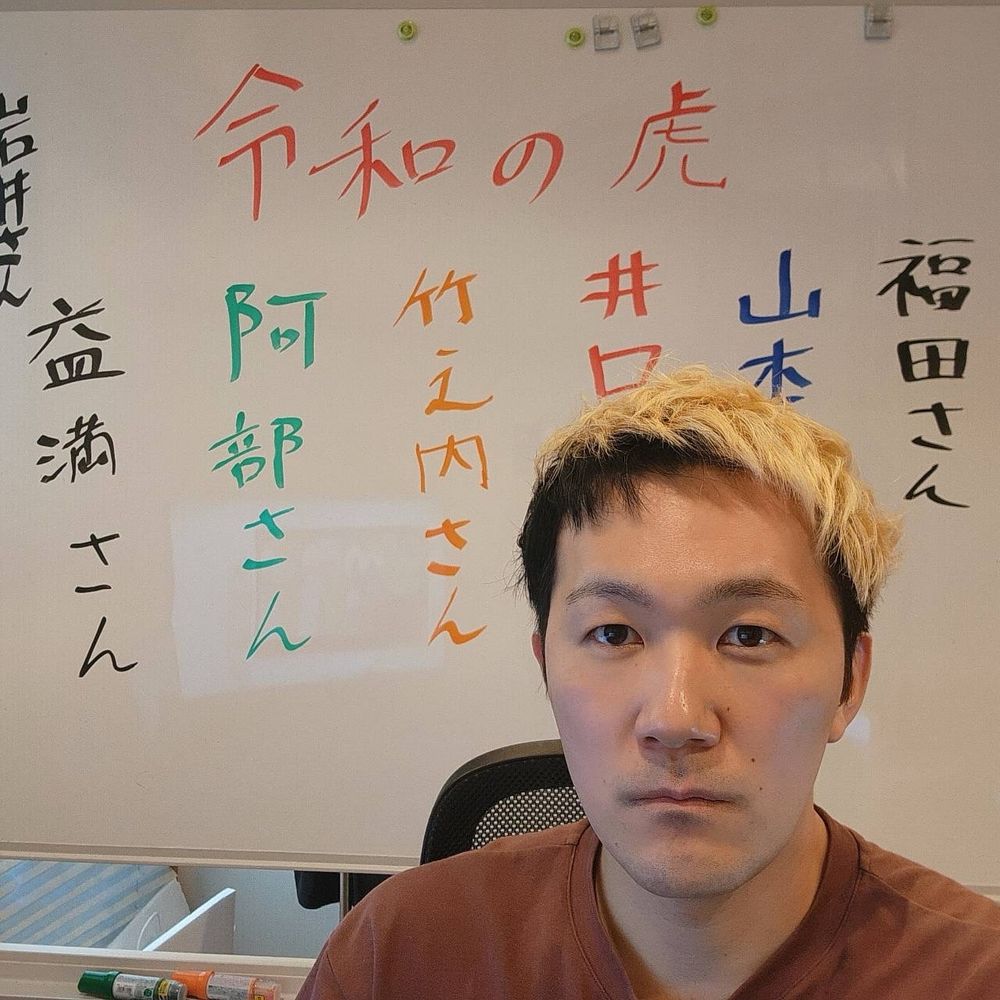 令和の虎
福田さん
山本
井口
竹之内さん
阿部さん
益満さん
岩井さん